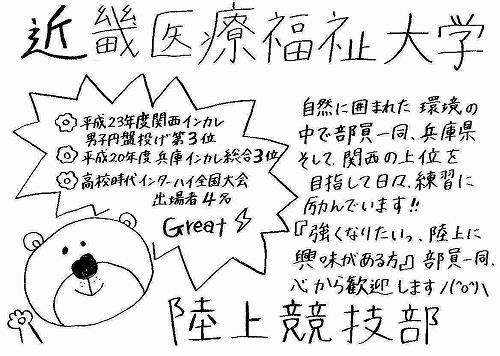 近畿医療福祉大学
平成23年度関西インカレ
男子円盤投げ第3位
平成20年度兵庫インカレ総合3位
高校時代インターハイ全国大会
出場者4%
Great
自然に囲まれた環境の
中で部員一同、兵庫県
そして、関西の上位を
目指して日々、練習に
励んでいます!!
『強くなりたいっ、陸上に
興味がある方』部員一同、
心から歓迎します八(^o^)\
陸上競技部